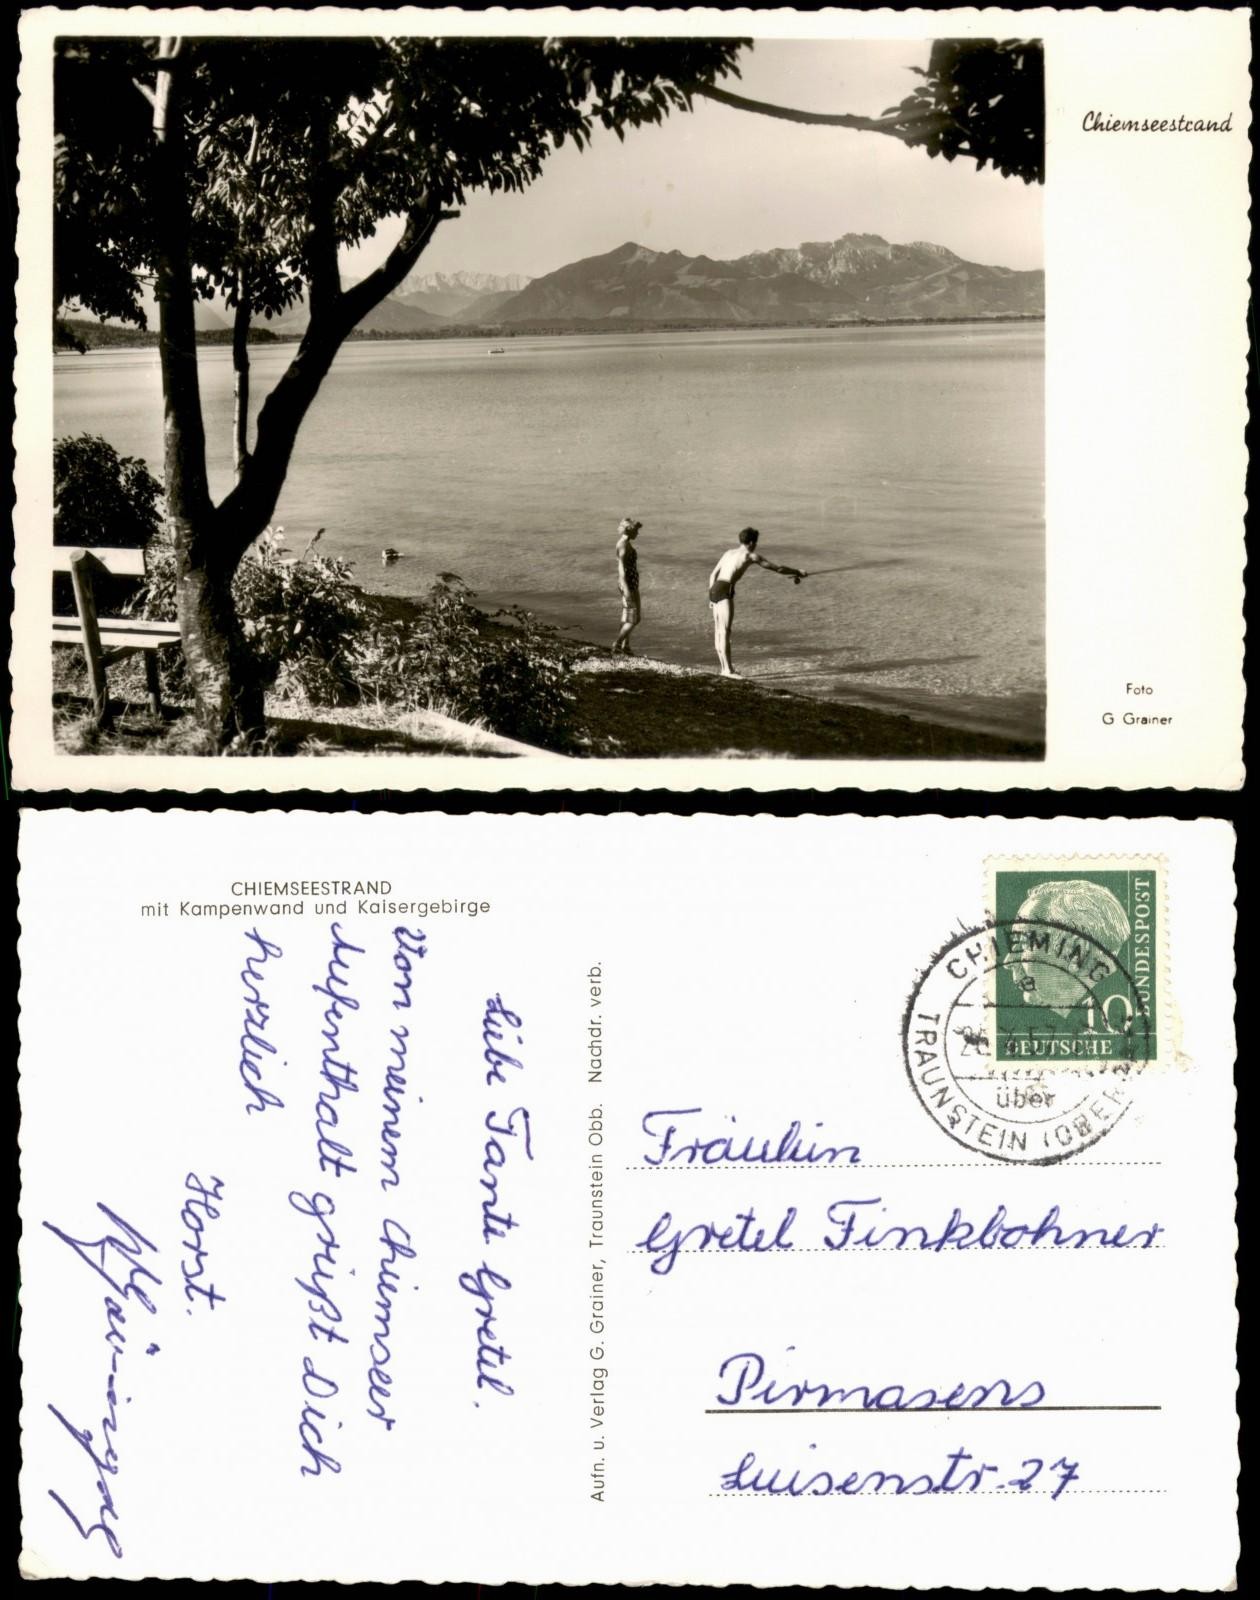 Chiemseestrand
Foto
G Grainer
CHIEMSEESTRAND
mit Kampenwand und Kaisergebirge
Liebe Tante Gretel.
Von meinem Chiemseer
Aufenthalt grüßt Dich
herzlich
Horst.
Aufn. u. Verlag G. Grainer, Traunstein Obb. Nachdr. verb.
BUNDESPOST
10
DEUTSCHE
CHIEMING
a
über
TRAUNSTEIN (OBERB
Fräulein
Gretel Finkbohner
Pirmasens
Luisenstr. 27